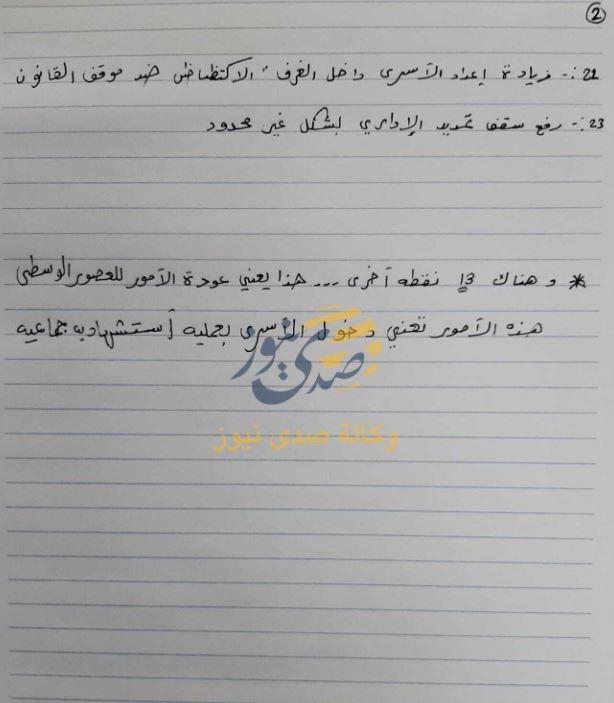 2
21:- زيادة إعداد الأسرى داخل الغرف: الاكتظاظ ضد موقف القانون
23:- رفع سقف تمديد الإداري بشكل غير محدود
* وهناك 13 نقطه أخرى ... هذا يعني عودة الأمور للعصور الوسطى
هذه الأمور تعني دخول الأسرى بعمليه إستشهاديه جماعيه
صدى نيوز
وكالة صدى نيوز